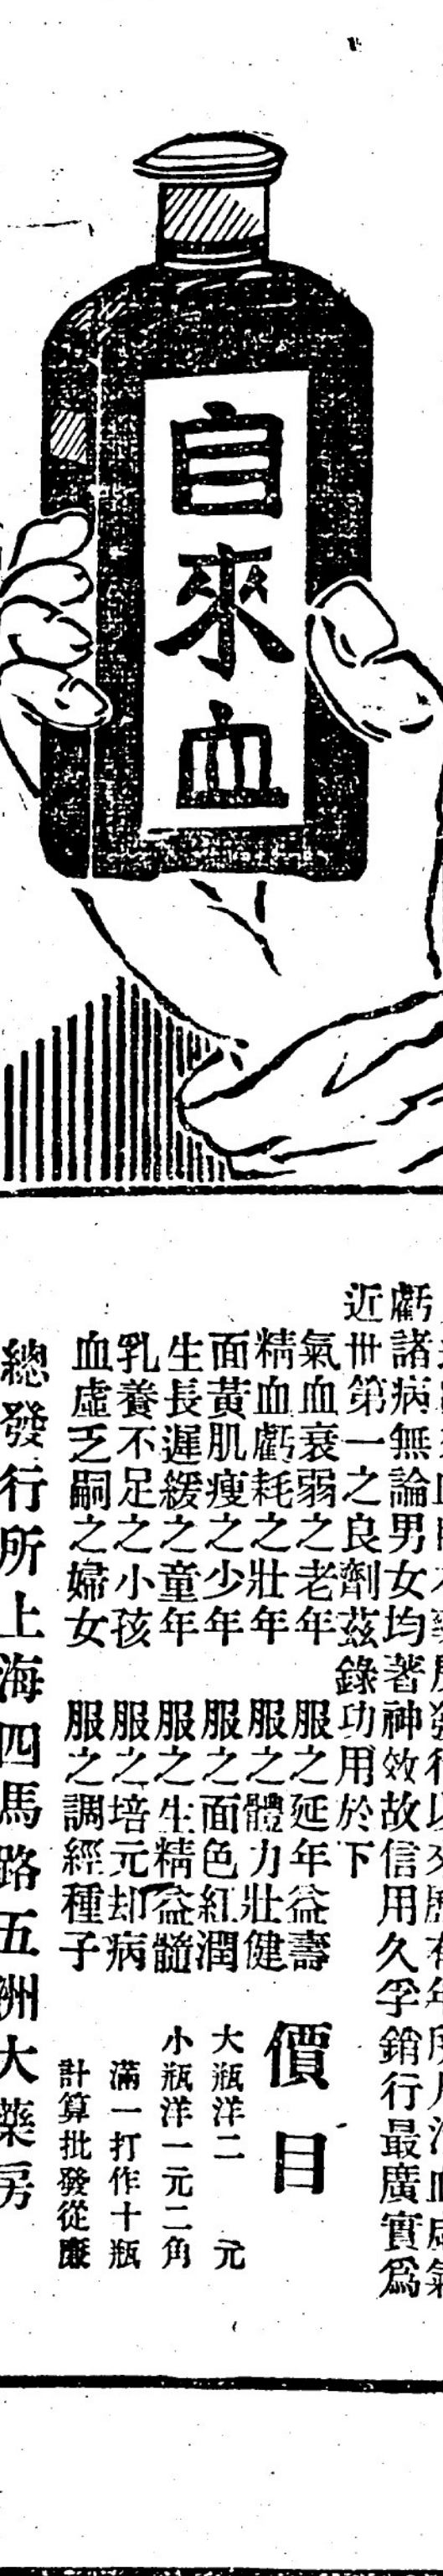 自來血
虧諸病無論男女均著神效故信用久孚銷行最廣實爲
近世第一之良劑茲錄功用於下
氣血衰弱之老年 服之延年益壽
精血虧耗之壯年 服之體力壯健
面黃肌瘦之少年 服之面色紅潤
生長遲緩之童年 服之生精益髓
乳養不足之小孩 服之培元却病
血虛乏嗣之婦女 服之調經種子
價目
大瓶洋二元
小瓶洋一元二角
滿一打作十瓶
計算批發從廉
總發行所上海四馬路五洲大藥房